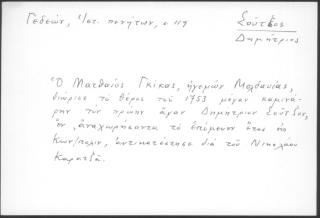 Γεδεών, ἱστ. πενήτων, σ 119
Σοῦτζος
Δημήτριος
Ὁ Ματθαῖος Γκίκας, ἡγεμὼν Μολδαυίας,
διώρισε τὸ θέρος τοῦ 1753 μέγαν καμινά-
ρην τὸν πρώην ἄγαν Δημήτριον Σοῦτζον,
ὃν, ἀναχωρήσαντα τὸ ἑπόμενον ἔτος εἰς
Κων/πολιν, ἀντικατέστησε διὰ τοῦ Νικολάου
Καρατζᾶ.